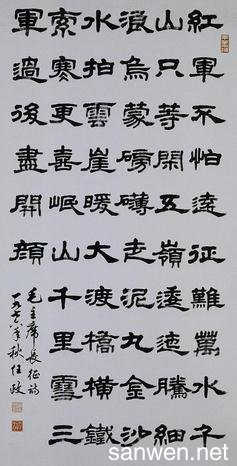 紅軍不怕遠征難萬水千
山只等閑五嶺逶迤騰細
浪烏蒙磅礴走泥丸金沙
水拍雲崖暖大渡橋橫鐵
索寒更喜岷山千里雪三
軍過後盡開顏
毛主席長征詩
一九年秋任政
sanwen.net